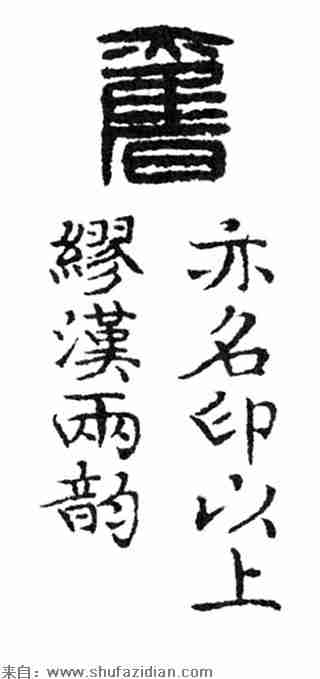 亦名印以上
繆漢兩韵
来自：www.shufazidian.com